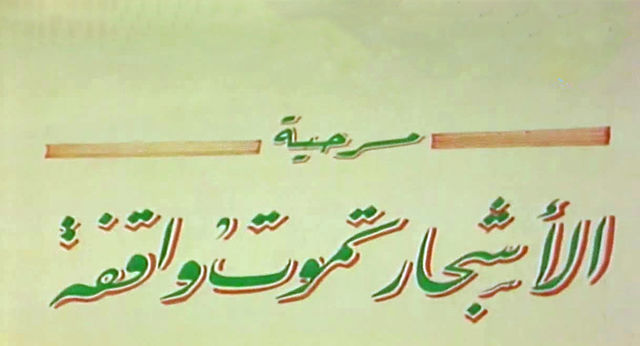 مسرحية
الأشجار تموت واقفة